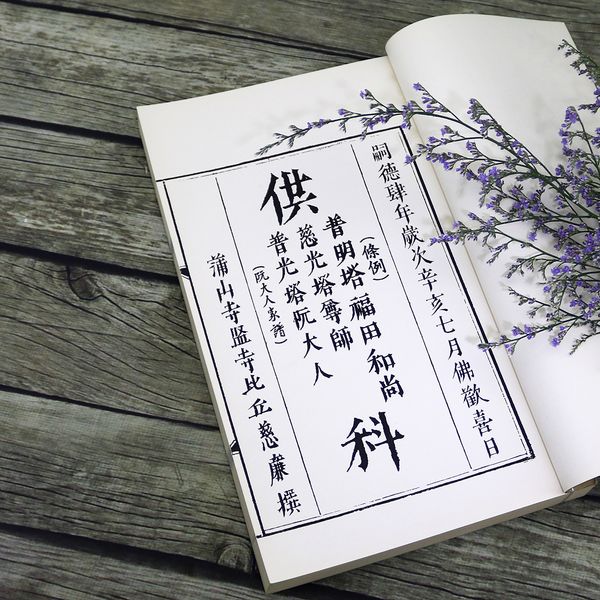 嗣德肆年歲次辛亥七月佛歡喜日
供
(條例)
普明塔福田和尚
慈光塔尊師
普光塔阮大人
(阮大人家譜)
科
蒲山寺監寺比丘慈廉撰